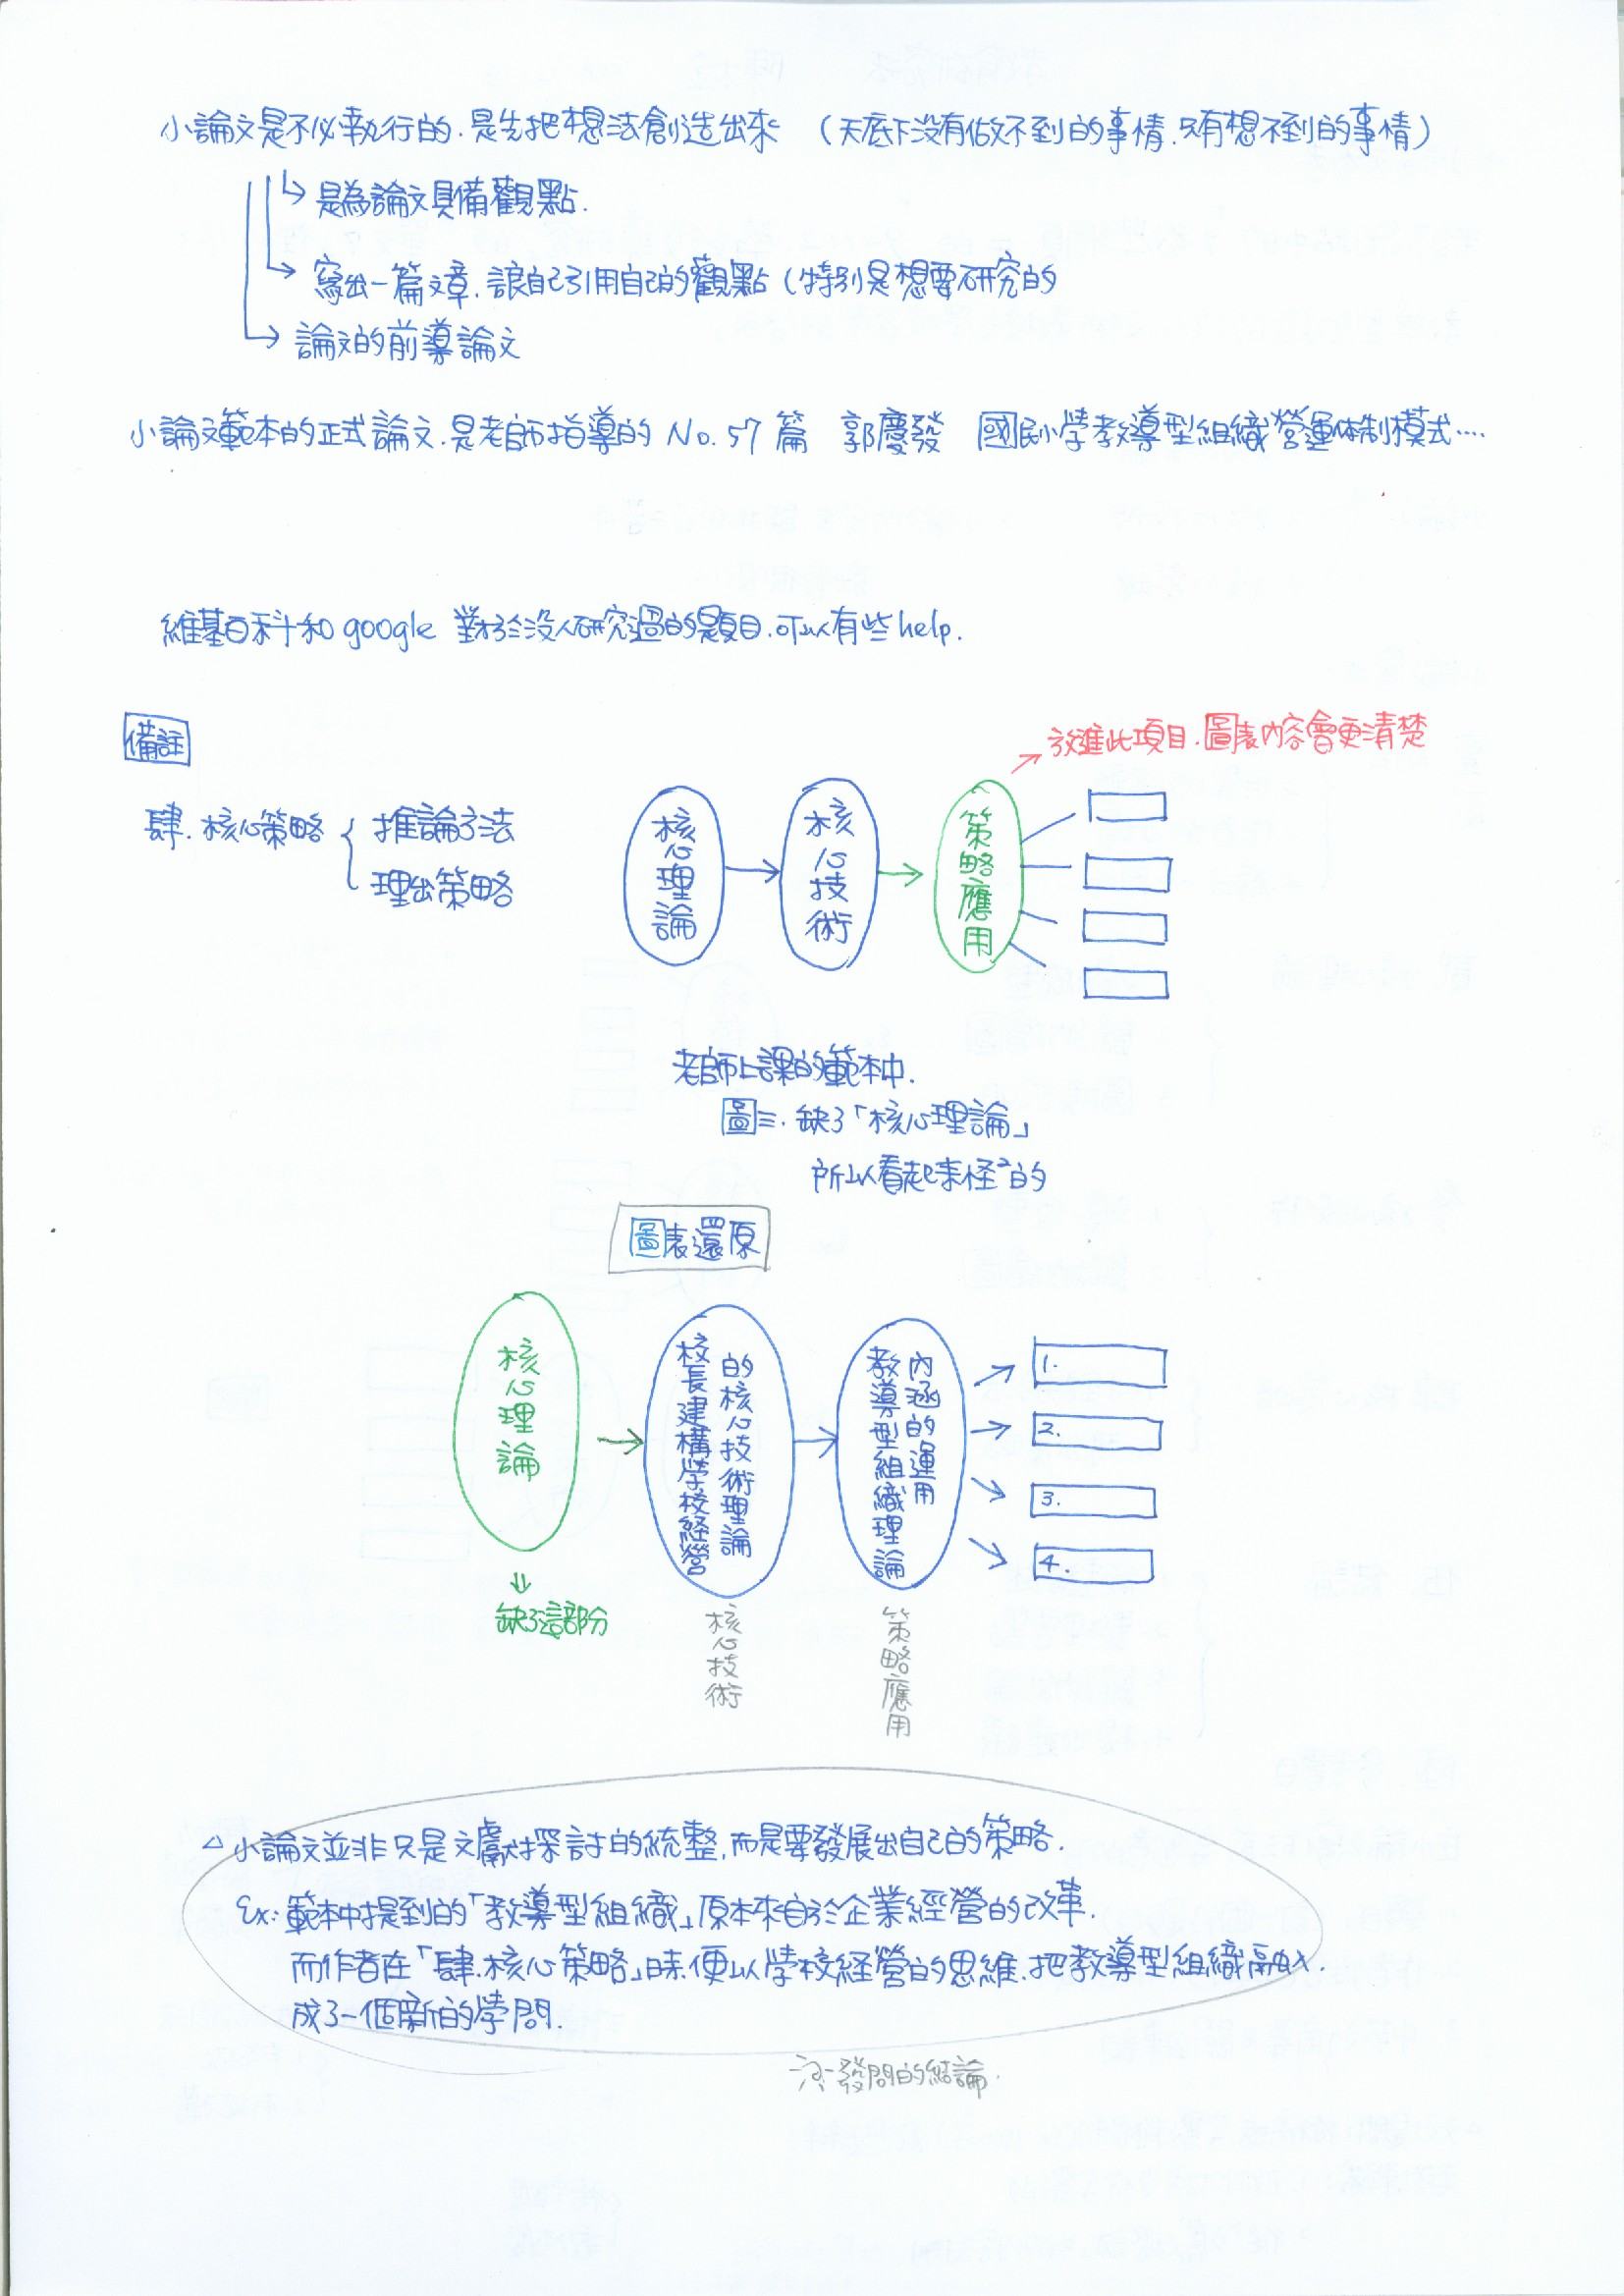 小論文是不必執行的．是先把想法創造出來 （天底下沒有做不到的事情．只有想不到的事情）
是為論文具備觀點．
寫出一篇文章．讓自己引用自己的觀點（特別是想要研究的
論文的前導論文
小論文範本的正式論文．是老師指導的 No. 57 篇 郭慶發 國民小學教導型組織營運体制模式‥‥
維基百科和 google 對於沒人研究過的題目．可以有些 help.
放進此項目．圖表內容會更清楚
備註
肆．核心策略 { 推論方法
理出策略
核心理論
核心技術
策略應用
老師上課的範本中．
圖三．缺了「核心理論」
所以看起來怪²的
圖表還原
核心理論
校長建構学校経營
的核心技術理論
教導型組織理論
內涵的運用
1.
2.
3.
4.
缺了這部分
核心技術
策略應用
△小論文並非只是文獻探討的統整，而是要發展出自己的策略．
Ex：範本中提到的「教導型組織」原本來自於企業經營的改革．
而作者在「肆．核心策略」時．便以學校経營的思維．把教導型組織融入．
成了一個新的學問．
發問的結論．